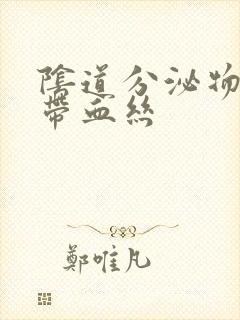 陰道分泌物
帶血絲
鄭唯凡